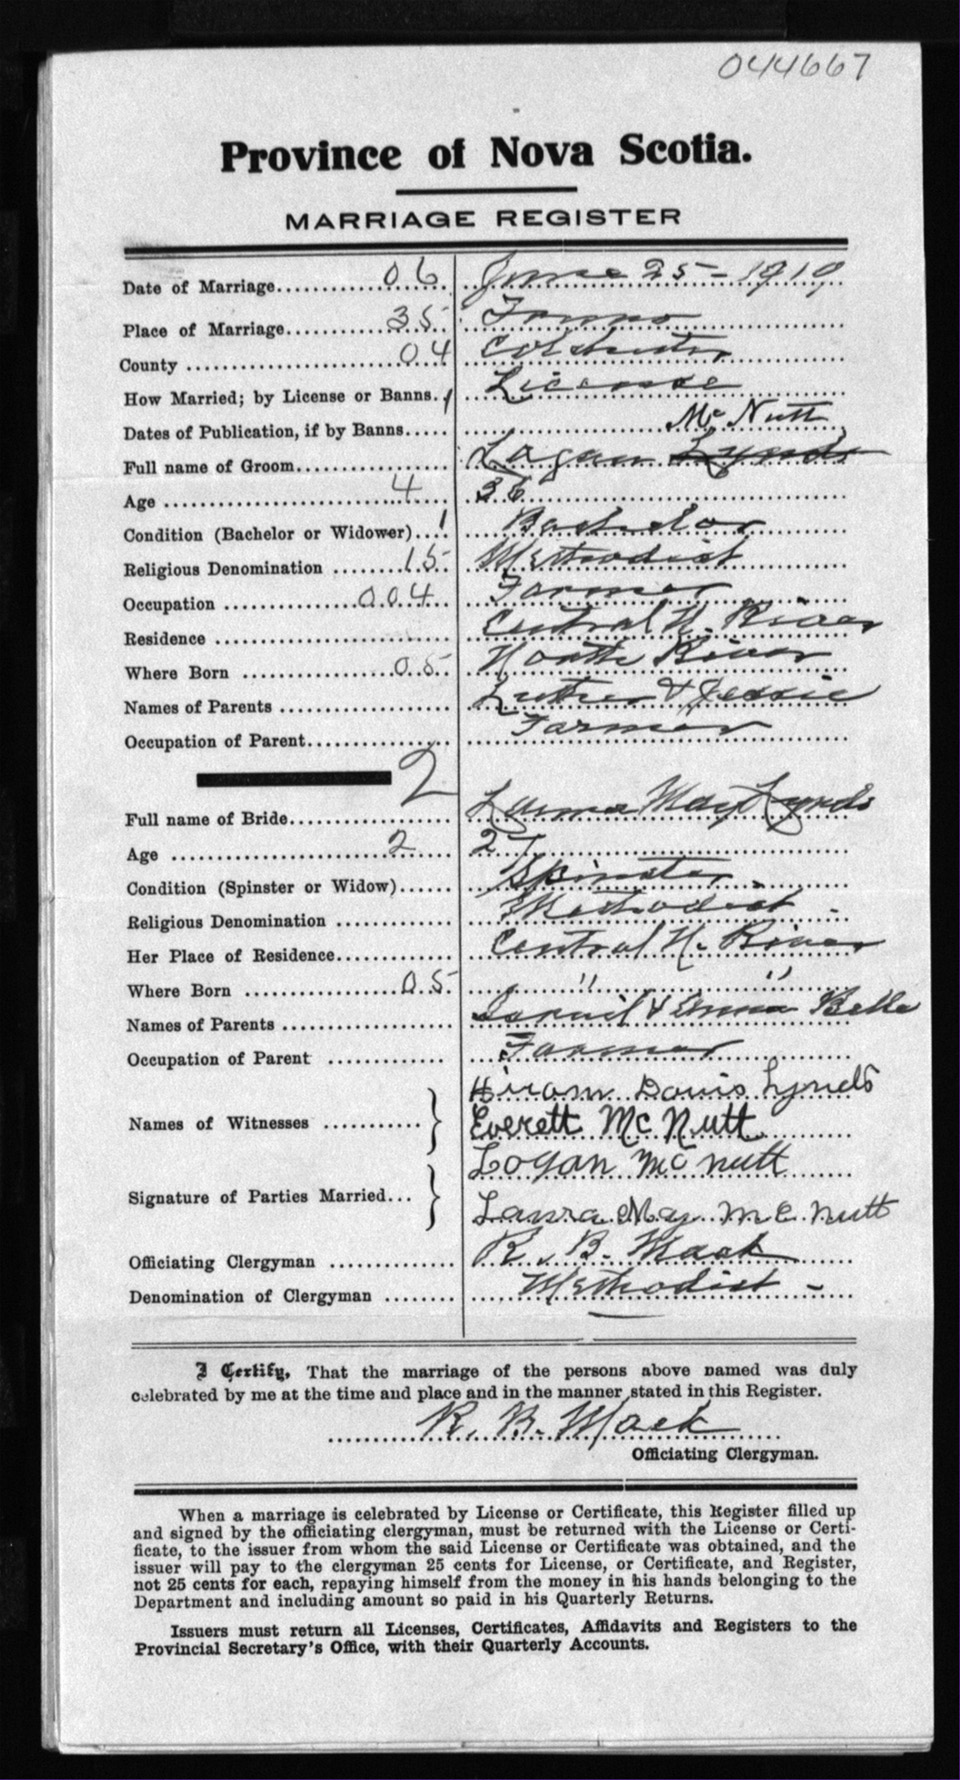 044667
Province of Nova Scotia.
MARRIAGE REGISTER
Date of Marriage 06 June 25 - 1919
Place of Marriage 35 Truro
County 04 Colchester
How Married; by License or Banns. 1 License
Dates of Publication, if by Banns McNutt
Full name of Groom Logan Lynds
Age 4 36
Condition (Bachelor or Widower) 1 Bachelor
Religious Denomination 15 Methodist
Occupation 004 Farmer
Residence Central N. River
Where Born 05 North River
Names of Parents Luther & Jessie
Occupation of Parent Farmer
2
Full name of Bride Laura May Lynds
Age 2 27
Condition (Spinster or Widow) Spinster
Religious Denomination Methodist -
Her Place of Residence Central N. River
Where Born 05 " "
Names of Parents & Emma Belle
Occupation of Parent Farmer
Hiram Davis Lynds
Names of Witnesses Everett McNutt
Logan McNutt
Signature of Parties Married... Laura May McNutt
Officiating Clergyman R. B. Mack
Denomination of Clergyman Methodist -
I Certify, That the marriage of the persons above named was duly
celebrated by me at the time and place and in the manner stated in this Register.
R. B. Mack
Officiating Clergyman.
When a marriage is celebrated by License or Certificate, this Register filled up
and signed by the officiating clergyman, must be returned with the License or Certi-
ficate, to the issuer from whom the said License or Certificate was obtained, and the
issuer will pay to the clergyman 25 cents for License, or Certificate, and Register,
not 25 cents for each, repaying himself from the money in his hands belonging to the
Department and including amount so paid in his Quarterly Returns.
Issuers must return all Licenses, Certificates, Affidavits and Registers to the
Provincial Secretary's Office, with their Quarterly Accounts.